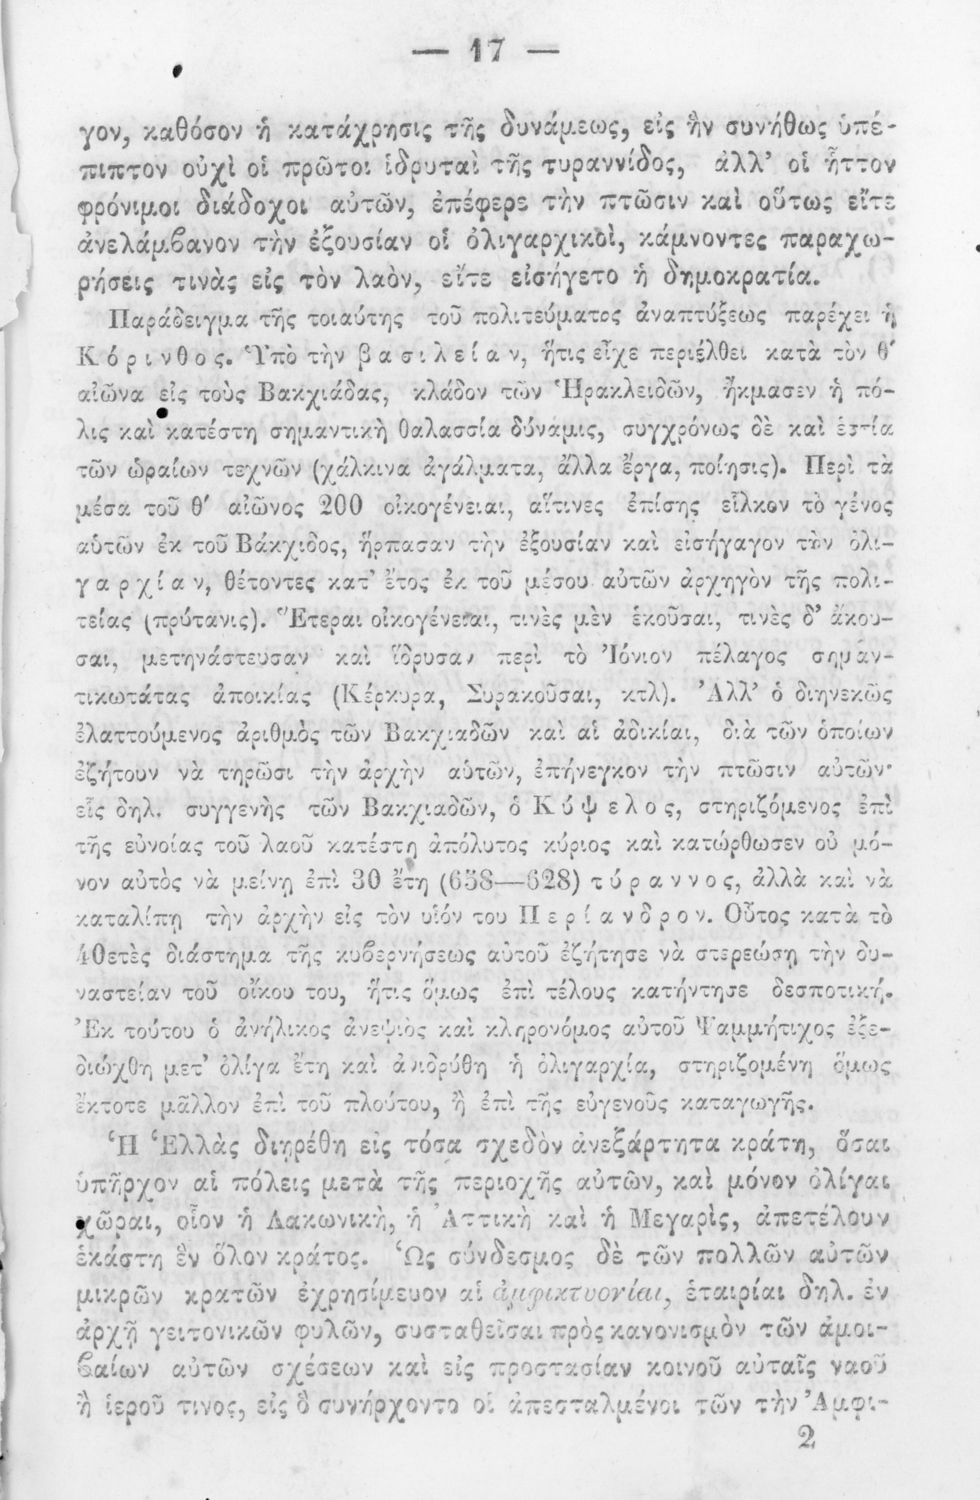 — 17 —
γον, καθόσον ἡ κατάχρησις τῆς δυνάμεως, εἰς ἣν συνήθως ὑπέ-
πιπτον οὐχὶ οἱ πρῶτοι ἱδρυταὶ τῆς τυραννίδος, ἀλλ' οἱ ἧττον
φρόνιμοι διάδοχοι αὐτῶν, ἐπέφερε τὴν πτῶσιν καὶ οὕτως εἴτε
ἀνελάμβανον τὴν ἐξουσίαν οἱ ὀλιγαρχικοὶ, κάμνοντες παραχω-
ρήσεις τινὰς εἰς τὸν λαὸν, εἴτε εἰσήγετο ἡ δημοκρατία.
Παράδειγμα τῆς τοιαύτης τοῦ πολιτεύματος ἀναπτύξεως παρέχει ἡ
Κόρινθος. Ὑπὸ τὴν βασιλείαν, ἥτις εἶχε περιέλθει κατὰ τὸν θ'
αἰῶνα εἰς τοὺς Βακχιάδας, κλάδον τῶν Ἡρακλειδῶν, ἤκμασεν ἡ πό-
λις καὶ κατέστη σημαντικὴ θαλασσία δύναμις, συγχρόνως δὲ καὶ ἑστία
τῶν ὡραίων τεχνῶν (χάλκινα ἀγάλματα, ἄλλα ἔργα, ποίησις). Περὶ τὰ
μέσα τοῦ θ' αἰῶνος 200 οἰκογένειαι, αἵτινες ἐπίσης εἷλκον τὸ γένος
αὑτῶν ἐκ τοῦ Βάκχιδος, ἥρπασαν τὴν ἐξουσίαν καὶ εἰσήγαγον τὴν ὀλι-
γαρχίαν, θέτοντες κατ' ἔτος ἐκ τοῦ μέσου αὐτῶν ἀρχηγὸν τῆς πολι-
τείας (πρύτανις). Ἕτεραι οἰκογένειαι, τινὲς μὲν ἑκοῦσαι, τινὲς δ' ἄκου-
σαι, μετηνάστευσαν καὶ ἵδρυσαν περὶ τὸ Ἰόνιον πέλαγος σημαν-
τικωτάτας ἀποικίας (Κέρκυρα, Συρακοῦσαι, κτλ). Ἀλλ' ὁ διηνεκῶς
ἐλαττούμενος ἀριθμὸς τῶν Βακχιαδῶν καὶ αἱ ἀδικίαι, διὰ τῶν ὁποίων
ἐζήτουν νὰ τηρῶσι τὴν ἀρχὴν αὑτῶν, ἐπήνεγκον τὴν πτῶσιν αὐτῶν·
εἷς δηλ. συγγενὴς τῶν Βακχιαδῶν, ὁ Κύψελος, στηριζόμενος ἐπὶ
τῆς εὐνοίας τοῦ λαοῦ κατέστη ἀπόλυτος κύριος καὶ κατώρθωσεν οὐ μό-
νον αὐτὸς νὰ μείνῃ ἐπὶ 30 ἔτη (658—628) τύραννος, ἀλλὰ καὶ νὰ
καταλίπῃ τὴν ἀρχὴν εἰς τὸν υἱόν του Περίανδρον. Οὗτος κατὰ τὸ
40ετὲς διάστημα τῆς κυβερνήσεως αὑτοῦ ἐζήτησε νὰ στερεώσῃ τὴν δυ-
ναστείαν τοῦ οἴκου του, ἥτις ὅμως ἐπὶ τέλους κατήντησε δεσποτική.
Ἐκ τούτου ὁ ἀνήλικος ἀνεψιὸς καὶ κληρονόμος αὐτοῦ Ψαμμήτιχος ἐξε-
διώχθη μετ' ὀλίγα ἔτη καὶ ἀνιδρύθη ἡ ὀλιγαρχία, στηριζομένη ὅμως
ἔκτοτε μᾶλλον ἐπὶ τοῦ πλούτου, ἢ ἐπὶ τῆς εὐγενοῦς καταγωγῆς.
Ἡ Ἑλλὰς διῃρέθη εἰς τόσα σχεδὸν ἀνεξάρτητα κράτη, ὅσαι
ὑπῆρχον αἱ πόλεις μετὰ τῆς περιοχῆς αὐτῶν, καὶ μόνον ὀλίγαι
χῶραι, οἷον ἡ Λακωνικὴ, ἡ Ἀττικὴ καὶ ἡ Μεγαρὶς, ἀπετέλουν
ἑκάστη ἓν ὅλον κράτος. Ὡς σύνδεσμος δὲ τῶν πολλῶν αὐτῶν
μικρῶν κρατῶν ἐχρησίμευον αἱ ἀμφικτυονίαι, ἑταιρίαι δηλ. ἐν
ἀρχῇ γειτονικῶν φυλῶν, συσταθεῖσαι πρὸς κανονισμὸν τῶν ἀμοι-
βαίων αὐτῶν σχέσεων καὶ εἰς προστασίαν κοινοῦ αὐταῖς ναοῦ
ἢ ἱεροῦ τινος, εἰς ὃ συνήρχοντο οἱ ἀπεσταλμένοι τῶν τὴν Ἀμφι-
2